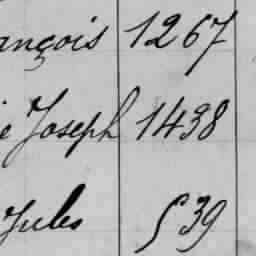 ançois 1267
e Joseph 1438
Jules 539